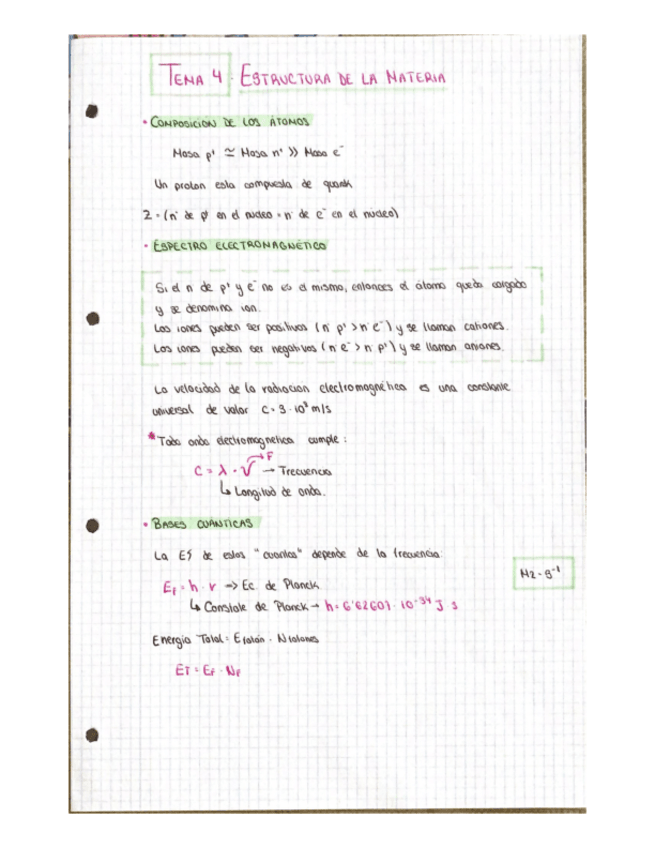 TEMA 4: ESTRUCTURA DE LA MATERIA
• COMPOSICION DE LOS ÁTOMOS
Masa p⁺ ≃ Masa n⁺ >> Masa e⁻
Un proton esta compuesta de quark
Z = (nº de p⁺ en el nucleo = nº de e⁻ en el nucleo)
• ESPECTRO ELECTROMAGNÉTICO
Si el n de p⁺ y e⁻ no es el mismo, entonces el átomo queda cargado
y se denomina ion.
Los iones pueden ser positivos (nº p⁺ > nº e⁻) y se llaman cationes.
Los iones pueden ser negativos (nº e⁻ > nº p⁺) y se llaman aniones.
La velocidad de la radiacion electromagnética es una constante
universal de valor C = 3 · 10⁸ m/s
* Toda onda electromagnetica cumple:
C = λ · V → Frecuencia
F
↳ Longitud de onda.
• BASES CUÁNTICAS
La Ef de estos "cuantos" depende de la frecuencia.
Ef = h · v → Ec. de Planck
Hz = s⁻¹
↳ Constate de Planck → h = 6'62607 · 10⁻³⁴ J · s
Energia Total = E fotón · N fotones
ET = Ef · Nf